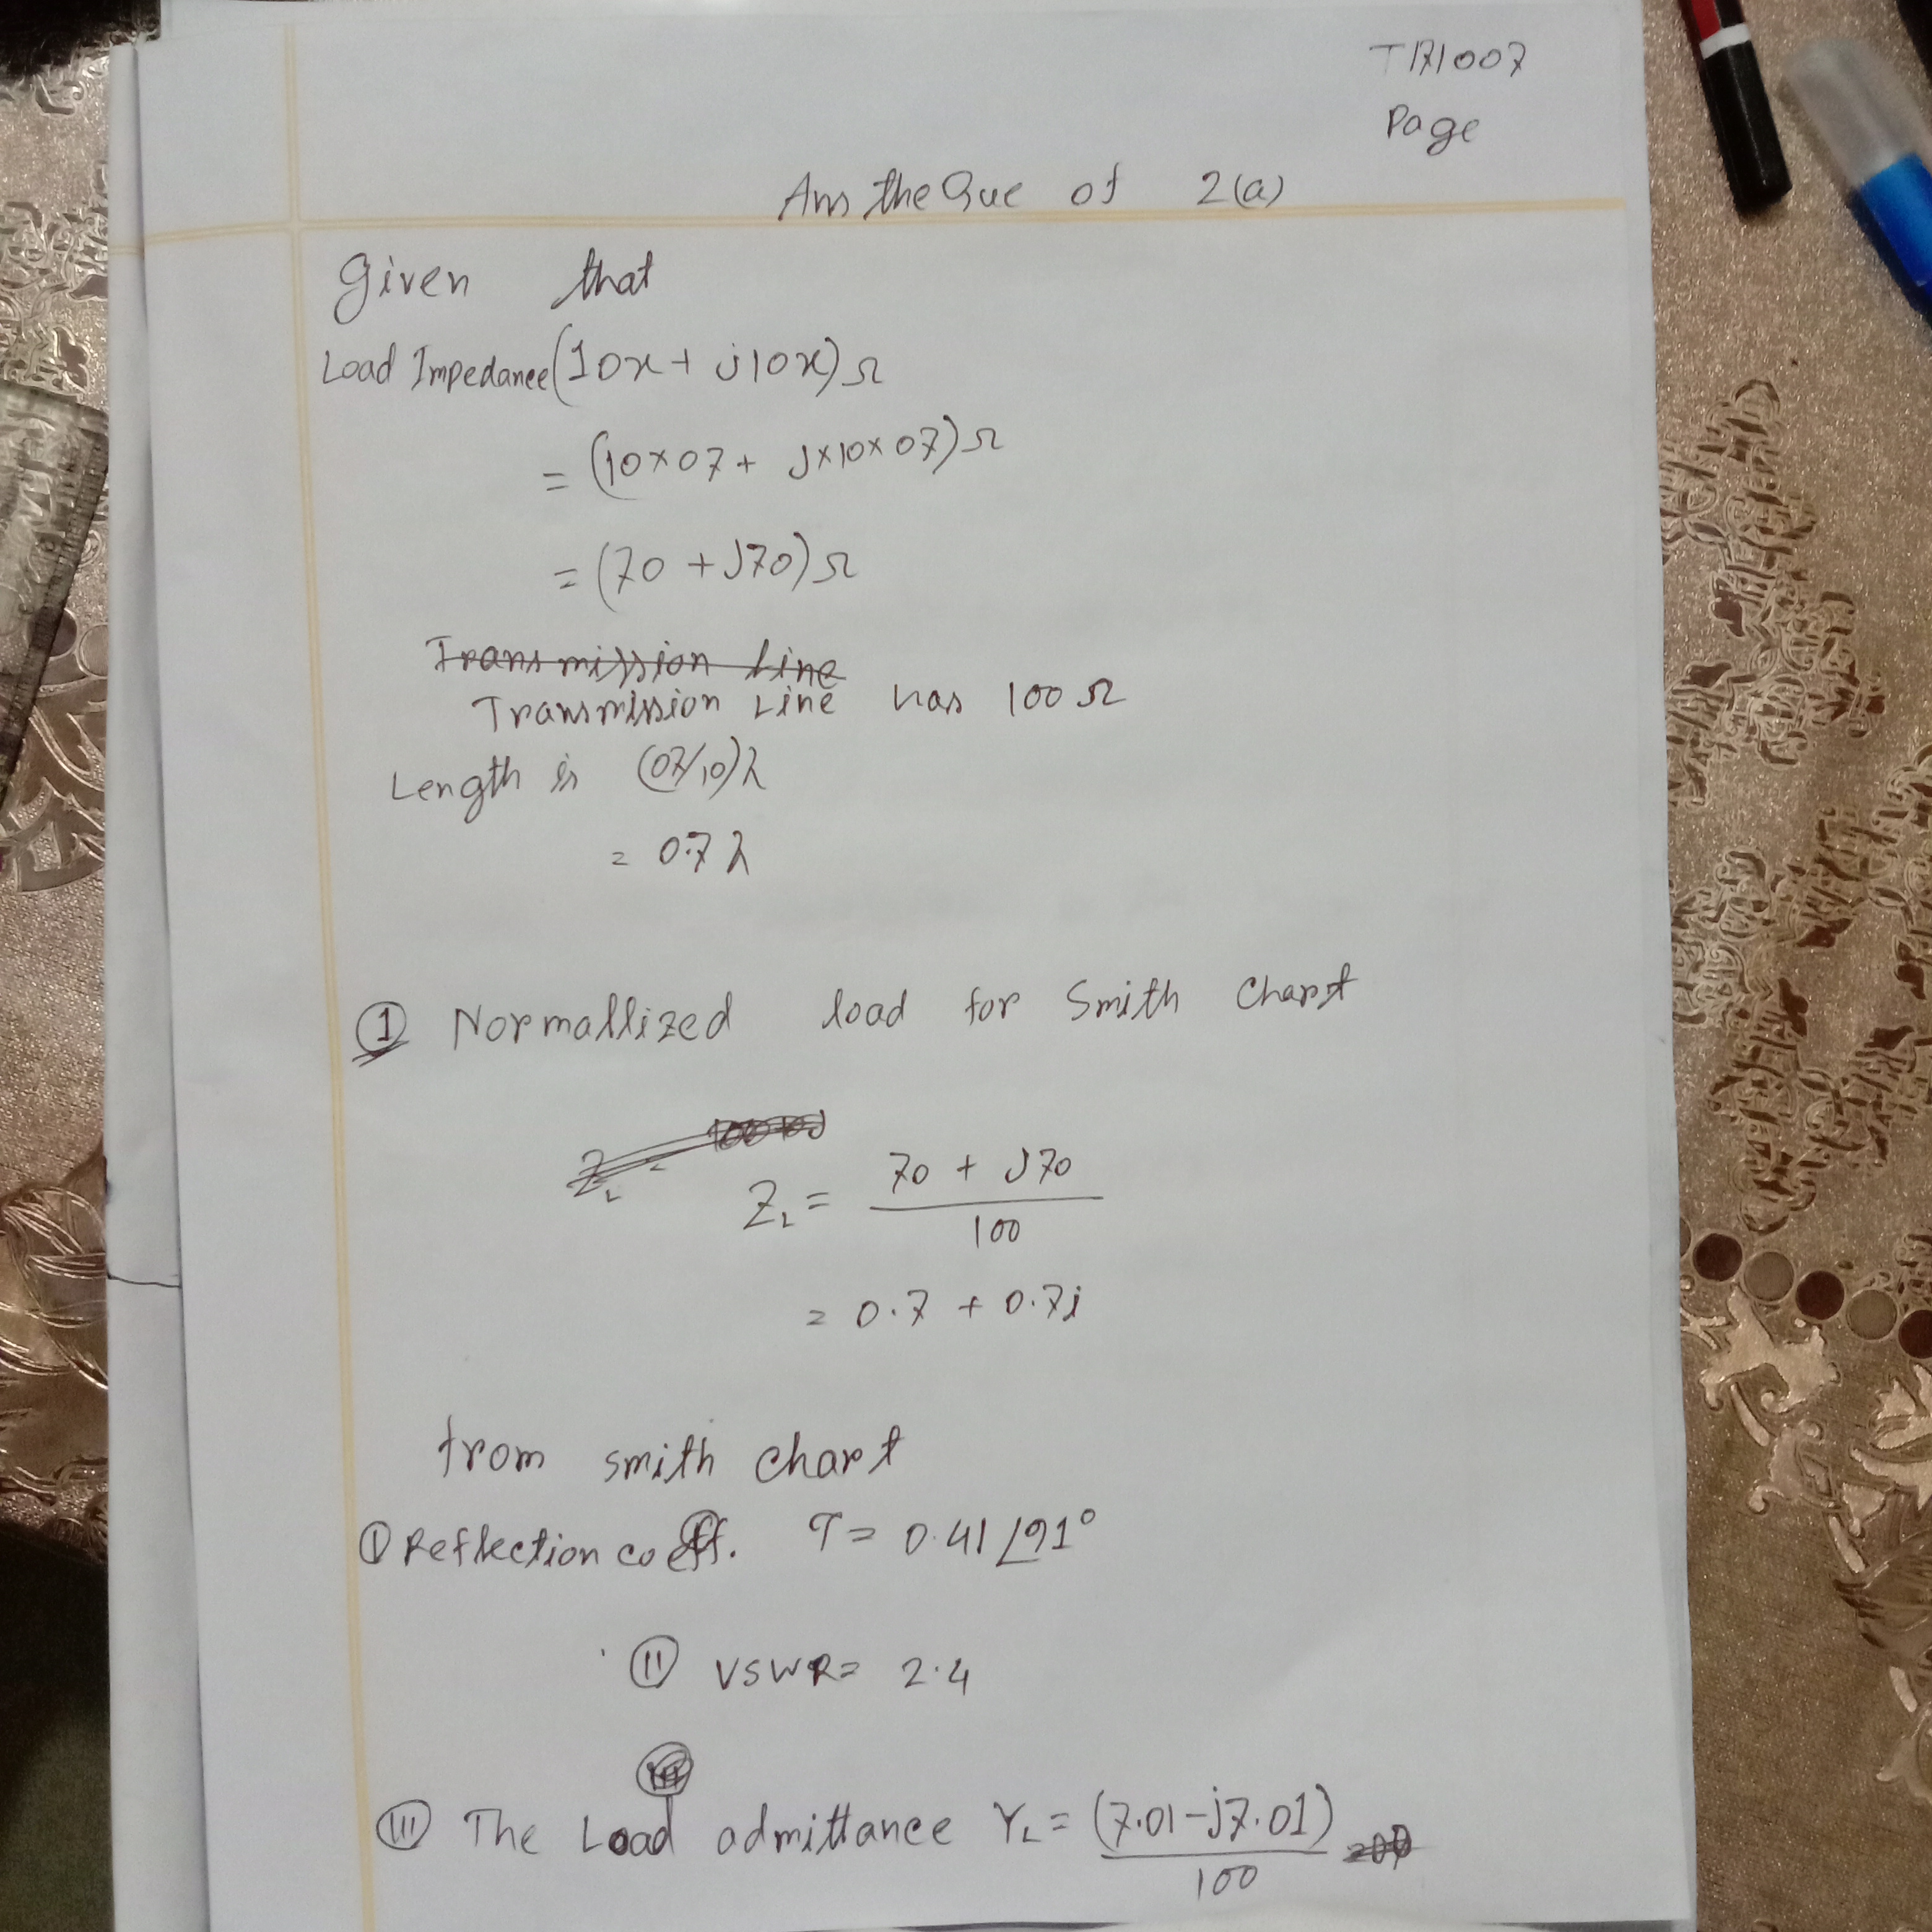 T171007
Page
Ans the Que of 2(a)
Given that
Load Impedance (10x + j10x)Ω
= (10×07 + j×10×07)Ω
= (70 + J70)Ω
Transmission Line
Transmission Line has 100 Ω
Length is (07/10)λ
= 0.7 λ
① Normallized load for Smith Chart
Z_L = (70 + J70)/100
= 0.7 + 0.7j
from smith chart
① Reflection coeff. Γ = 0.41 ∠91°
(II) VSWR = 2.4
(III) The Load admittance Y_L = (7.01 - j7.01)/100